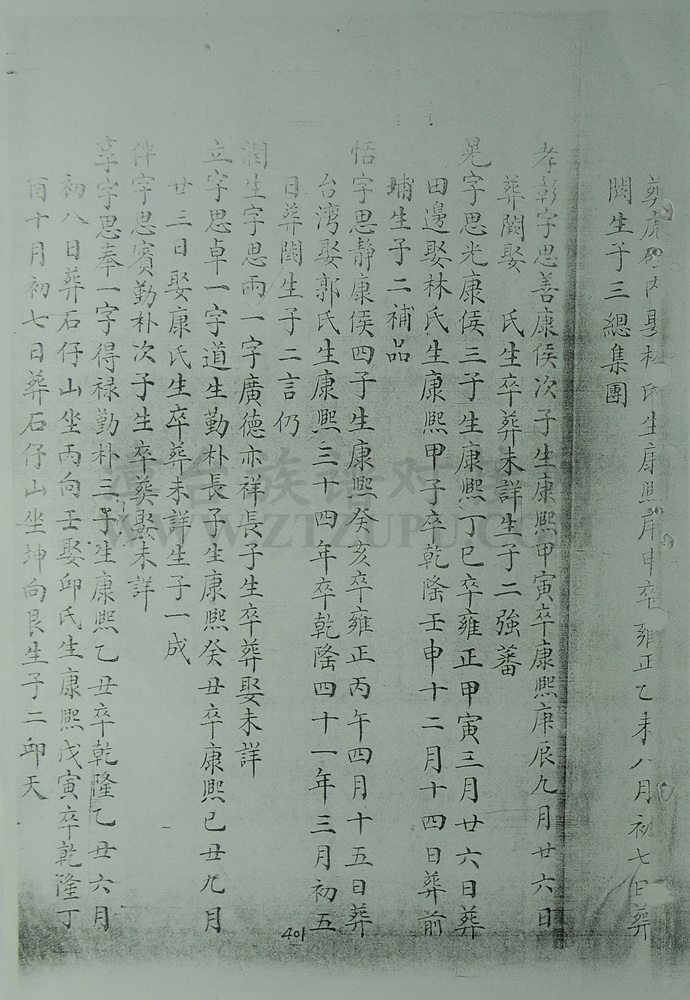 葬虎仔內娶林氏生康熙庚申卒雍正乙未八月初七日葬
闕生子三總集團
孝彰字思善康侯次子生康熙甲寅卒康熙庚辰九月廿六日
葬闕娶 氏生卒葬未詳生子二強蕃
晃字思光康侯三子生康熙丁巳卒雍正甲寅三月廿六日葬
田邊娶林氏生康熙甲子卒乾隆壬申十二月十四日葬前
埔生子二補品
恬字思靜康侯四子生康熙癸亥卒雍正丙午四月十五日葬
台湾娶郭氏生康熙三十四年卒乾隆四十一年三月初五
日葬闕生子二言仍
潤生字思雨一字廣德亦祥長子生卒葬娶未詳
立字思卓一字道生勤朴長子生康熙癸丑卒康熙己丑九月
廿三日娶康氏生卒葬未詳生子一成
伴字思賓勤朴次子生卒葵娶未詳
享字思奉一字得禄勤朴三子生康熙乙丑卒乾隆乙丑六月
初八日葬石仔山坐丙向壬娶邱氏生康熙戊寅卒乾隆丁
酉十月初七日葬石仔山坐坤向艮生子二卬天
401
WWW.ZTZUPU.COM